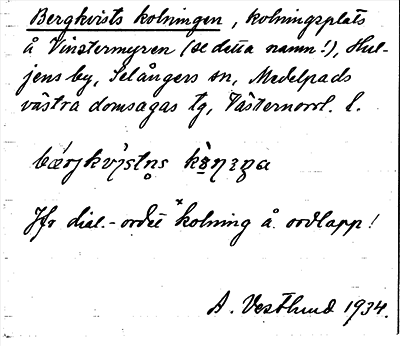 Bergkvists kolningen, kolningsplats
å Vinstermyren (se detta namn!), Hul-
jens by, Selångers sn, Medelpads
västra domsagas tg, Västernorrl. l.
Jfr dial.-ordet *kolning å ordlapp!
A. Vestlund 1934.